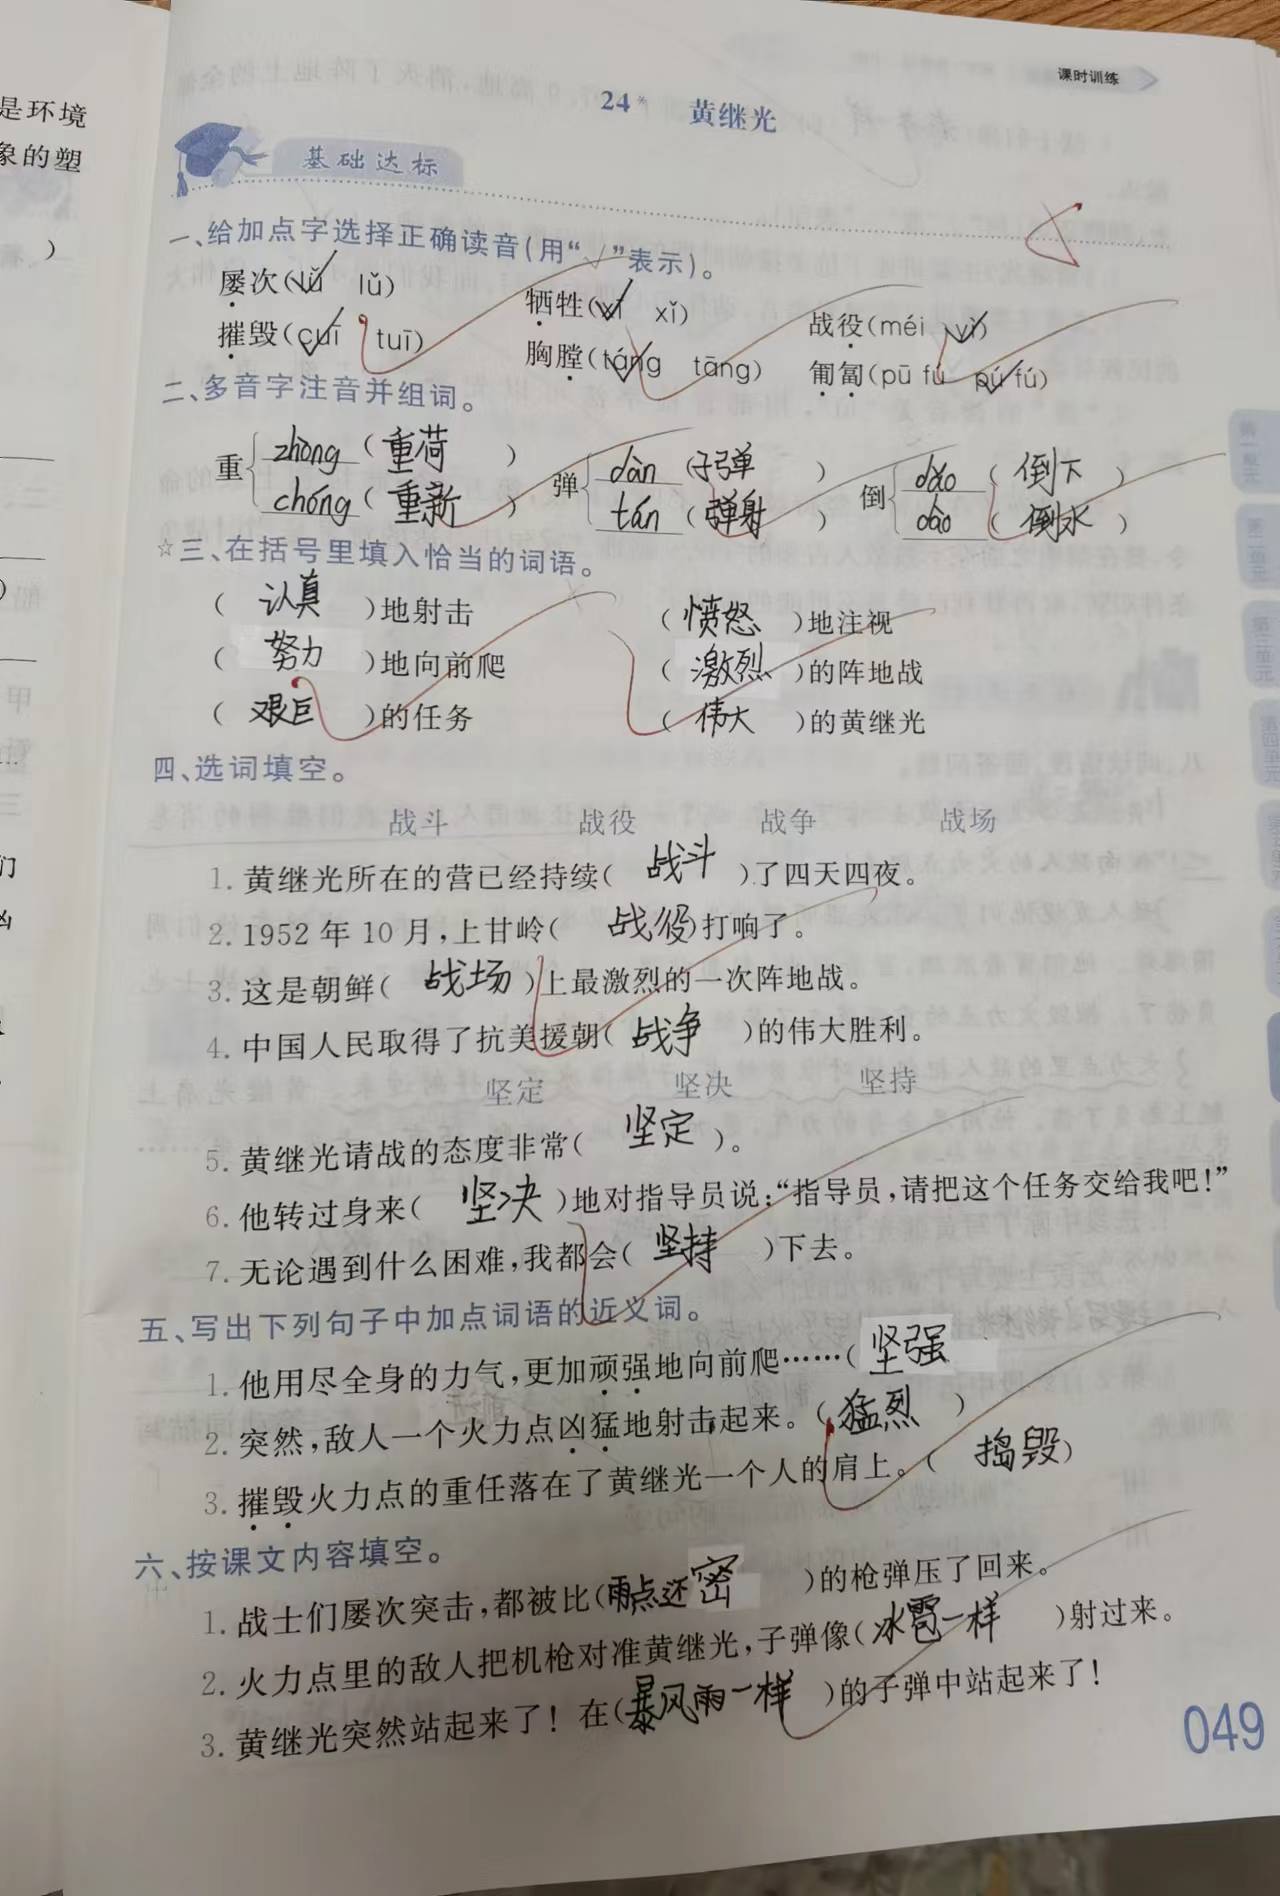 是环境
象的塑
)
课时训练
24* 黄继光
基础达标
一、给加点字选择正确读音(用“√”表示)。
屡次(lǚ lǔ) 牺牲(xī xǐ) 战役(méi yì)
摧毁(cuī tuī) 胸膛(táng tāng) 匍匐(pū fú pú fú)
二、多音字注音并组词。
重 zhòng (重荷) 弹 dàn (子弹) 倒 dǎo (倒下)
chóng (重新) tán (弹射) dào (倒水)
☆三、在括号里填入恰当的词语。
(认真)地射击 (愤怒)地注视
(努力)地向前爬 (激烈)的阵地战
(艰巨)的任务 (伟大)的黄继光
四、选词填空。
战斗 战役 战争 战场
1. 黄继光所在的营已经持续(战斗)了四天四夜。
2. 1952年10月,上甘岭(战役)打响了。
3. 这是朝鲜(战场)上最激烈的一次阵地战。
4. 中国人民取得了抗美援朝(战争)的伟大胜利。
坚定 坚决 坚持
5. 黄继光请战的态度非常(坚定)。
6. 他转过身来(坚决)地对指导员说:“指导员,请把这个任务交给我吧!”
7. 无论遇到什么困难,我都会(坚持)下去。
五、写出下列句子中加点词语的近义词。
1. 他用尽全身的力气,更加顽强地向前爬……(坚强
2. 突然,敌人一个火力点凶猛地射击起来。(猛烈)
3. 摧毁火力点的重任落在了黄继光一个人的肩上。(捣毁)
六、按课文内容填空。
1. 战士们屡次突击,都被比(雨点还密)的枪弹压了回来。
2. 火力点里的敌人把机枪对准黄继光,子弹像(冰雹一样)射过来。
3. 黄继光突然站起来了!在(暴风雨一样)的子弹中站起来了!
049